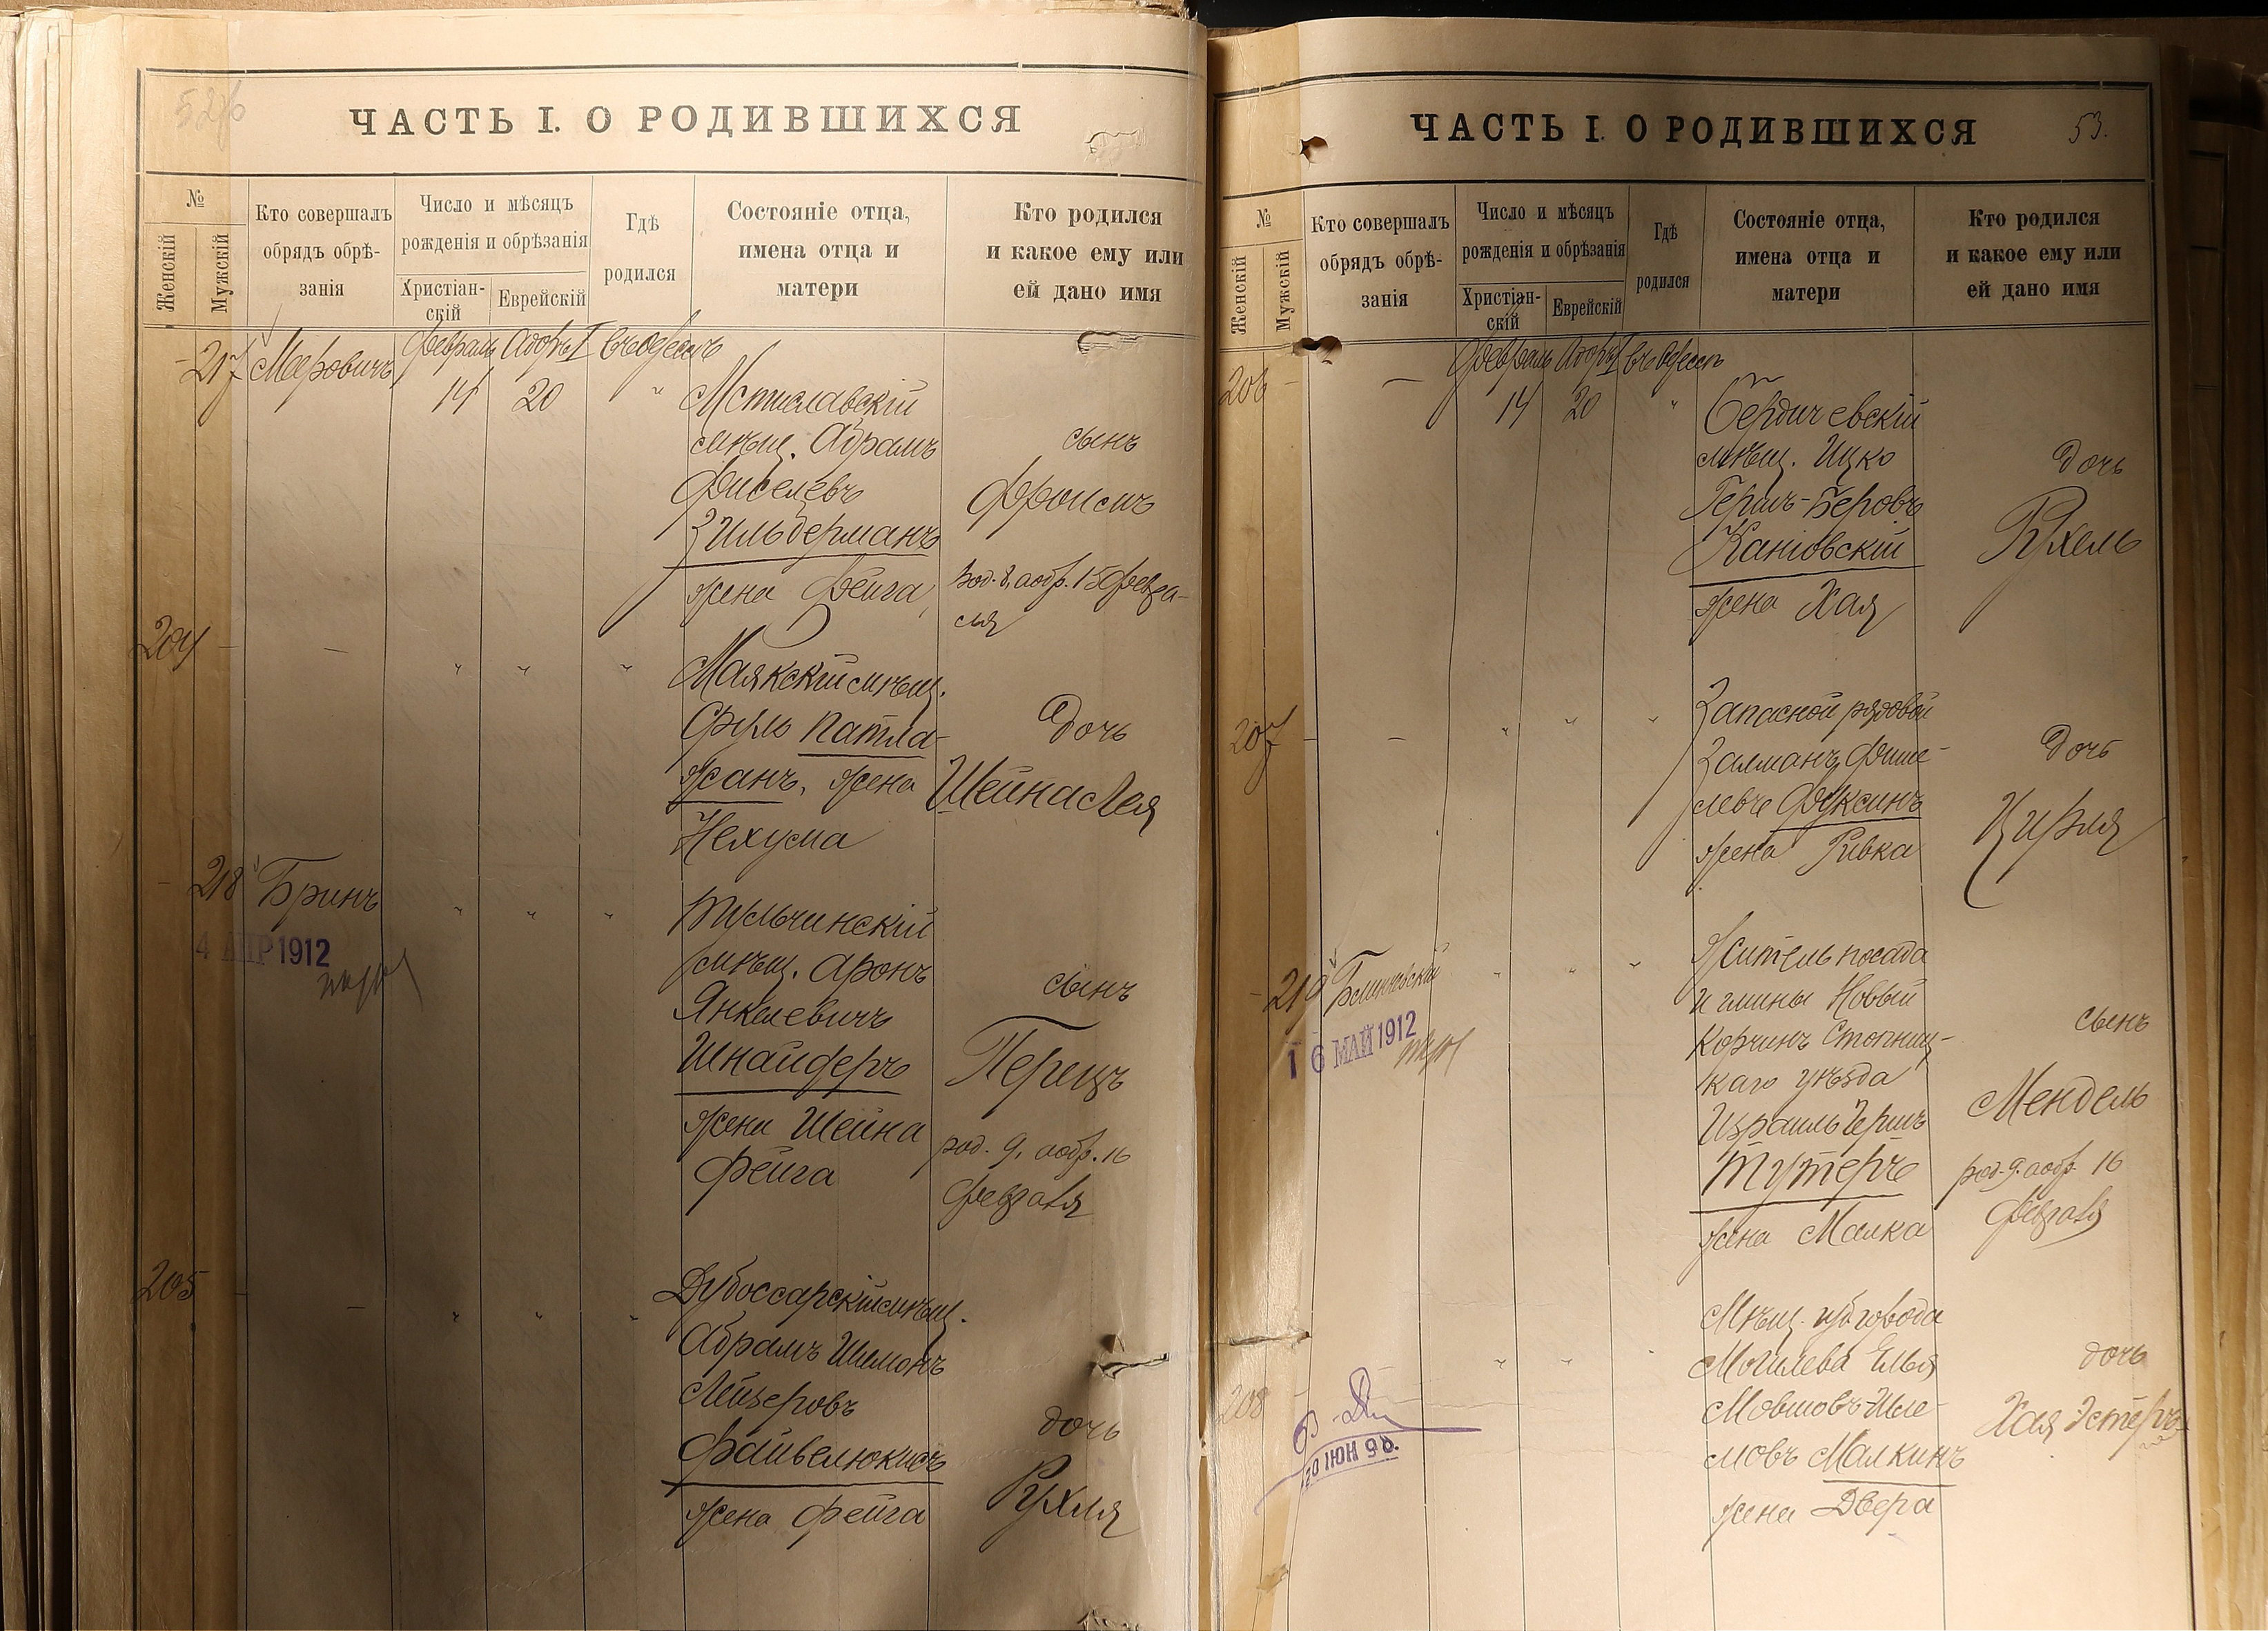 ЧАСТЬ I. О РОДИВШИХСЯ
№
Женскій
Мужскій
Кто совершалъ
обрядъ обрѣ-
занія
Число и мѣсяцъ
рожденія и обрѣзанія
Христіан-
скій
Еврейскій
Гдѣ
родился
Состояніе отца,
имена отца и
матери
Кто родился
и какое ему или
ей дано имя
217 Меровичъ Февраль Адоръ I въ Одессѣ
14 20 "
Мстиславскій
мѣщ. Абрамъ
Фиселевъ
Зильберманъ
жена Фейга
сынъ
Фроимъ
род. 8, а обр. 15 Февра-
ля
204 — " " "
Маякскій мѣщ.
Сруль Патла-
жанъ, жена
Нехума
дочь
Шейна Лея
218 Бринъ " " "
4 АПР 1912
Тульчинскій
мѣщ. Аронъ
Янкелевичъ
Шнайдеръ
жена Шейна
Фейга
сынъ
Перецъ
род. 9, а обр. 16
февраля
205 — " " "
Дубоссарскій мѣщ.
Абрамъ Шимонъ
Лейзеровъ
Файвелюкисъ
жена Фейга
дочь
Рухля
ЧАСТЬ I. О РОДИВШИХСЯ
53.
№
Женскій
Мужскій
Кто совершалъ
обрядъ обрѣ-
занія
Число и мѣсяцъ
рожденія и обрѣзанія
Христіан-
скій
Еврейскій
Гдѣ
родился
Состояніе отца,
имена отца и
матери
Кто родился
и какое ему или
ей дано имя
206 — Февраль Адоръ I въ Одессѣ
14 20 "
Бердичевскій
мѣщ. Ицко
Гершъ-Беровъ
Каніовскій
жена Хая
дочь
Рухель
207 — " " "
Запасной рядовой
Залманъ Фише-
левъ Фуксинъ
жена Ривка
дочь
Цирля
219 " " "
16 МАЙ 1912
Житель посада
и гмины Новый
Корчинъ Стопниц-
каго уѣзда
Израиль Гершъ
Тутеръ
жена Малка
сынъ
Мендель
род. 9. а обр. 16
февраля
208 " " "
20 ІЮН 98.
Мѣщ. губ города
Могилева Елья
Мовшовъ-Шле-
мовъ Малкинъ
жена Двера
дочь
Хая Эстеръ